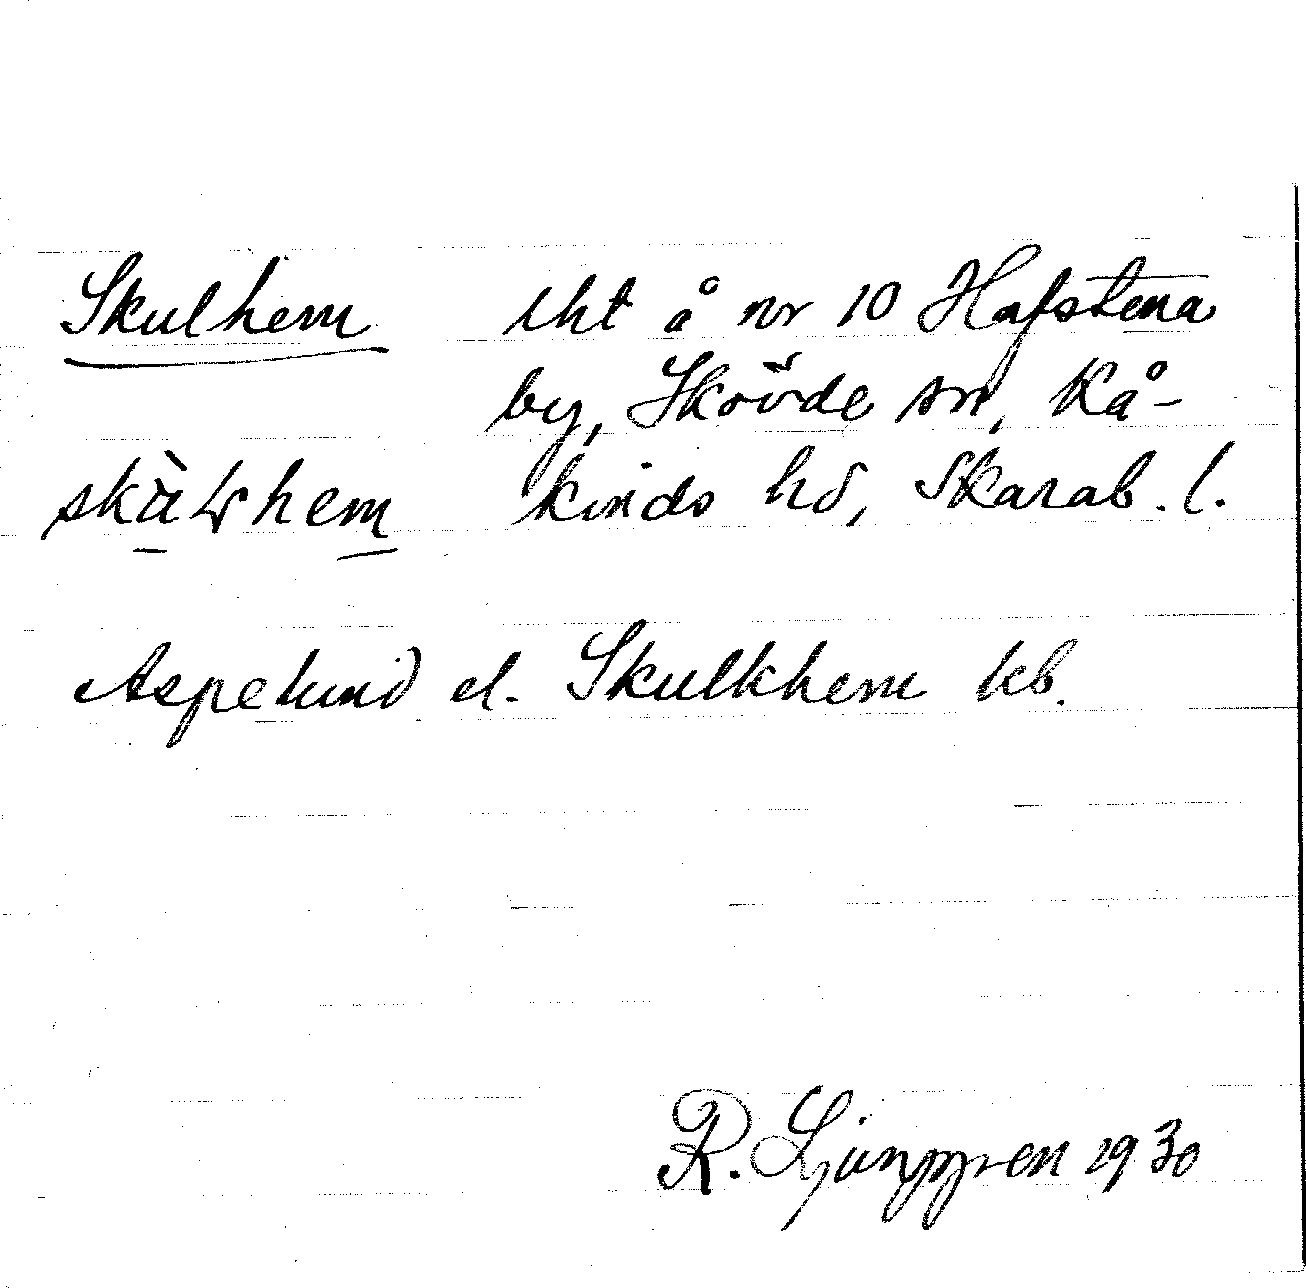 Skulhem lht å nr 10 Hafstena
by, Skövde sn, Kå-
kinds hd, Skarab. l.
hem
Aspelund el. Skulkhem kb.
R. Ljunggren 1930